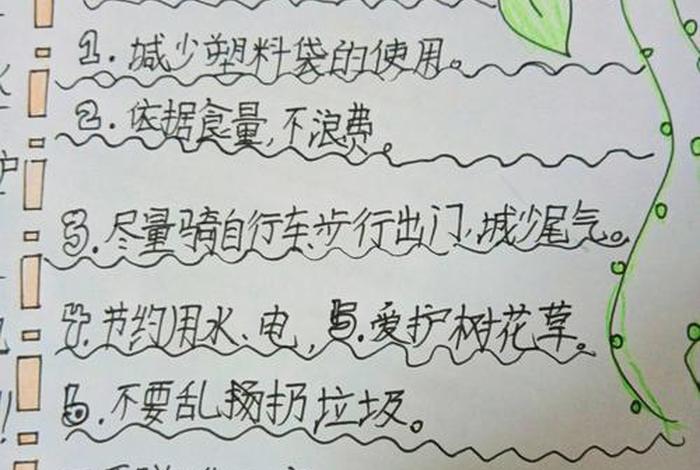 1.减少塑料袋的使用。
2.依据食量,不浪费。
3.尽量骑自行车、步行出门,减少尾气。
4.节约用水、电,5.爱护树花草。
6.不要乱扬扔垃圾。